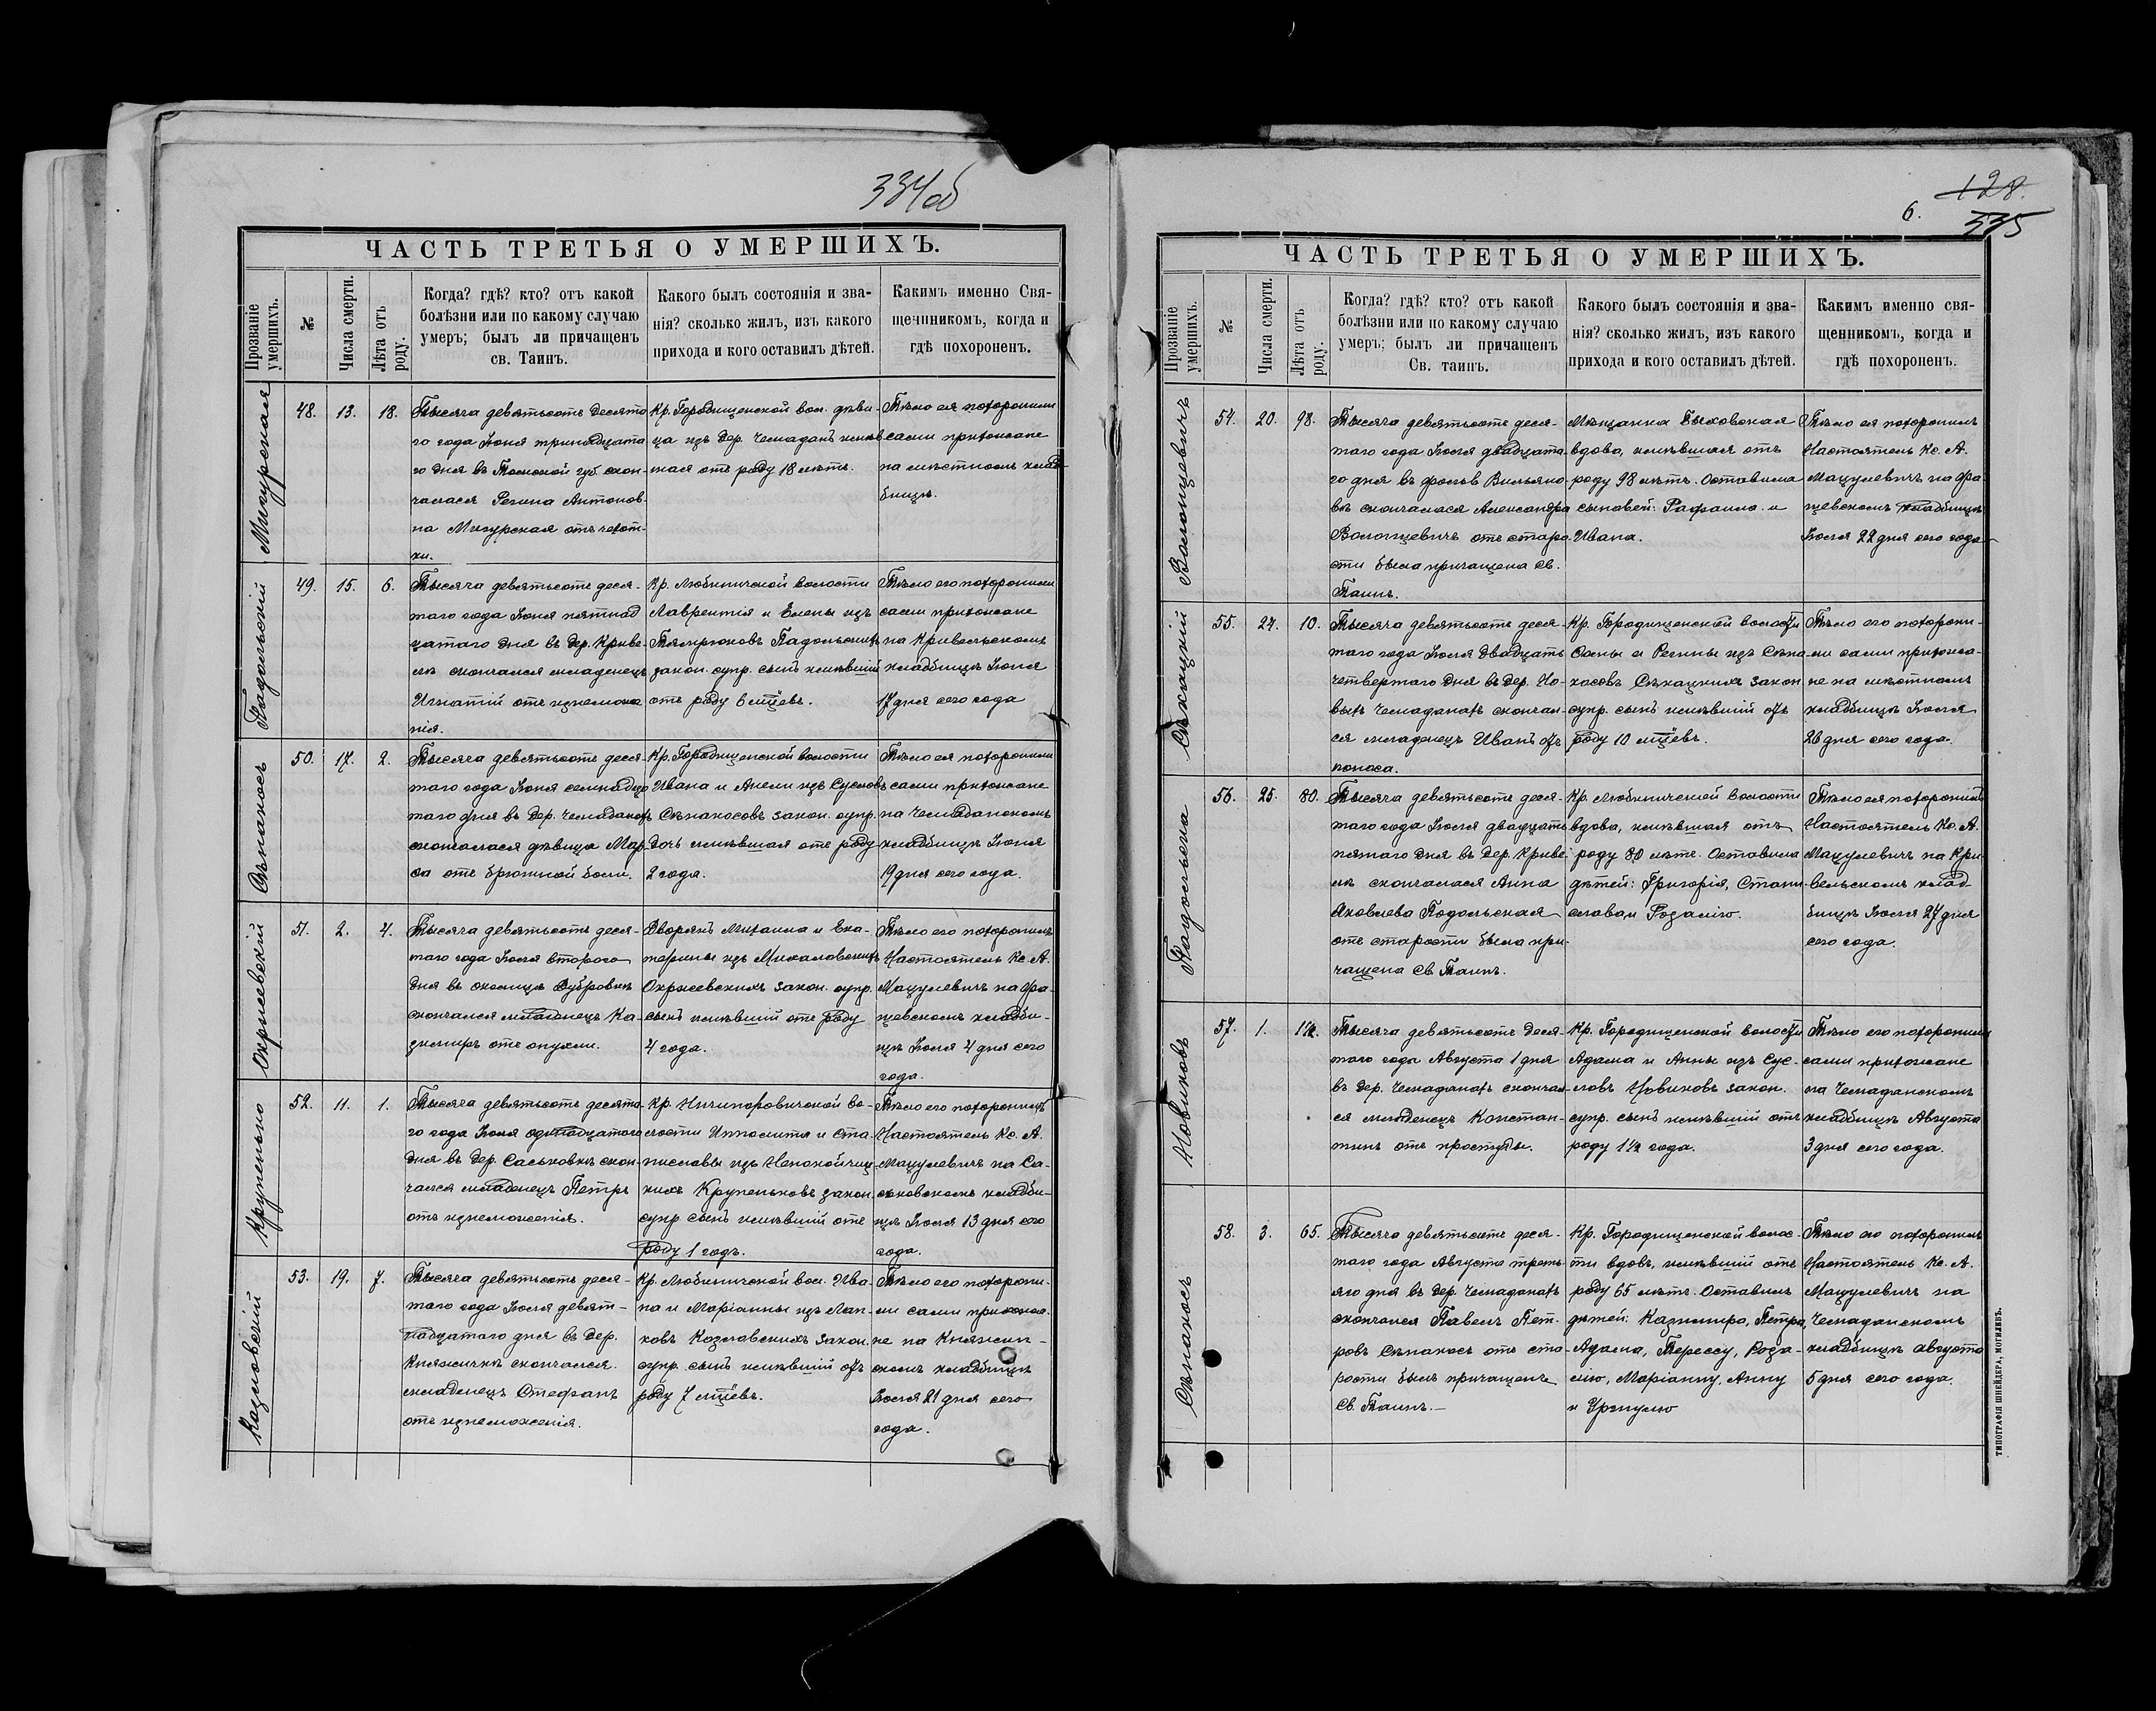 334об
ЧАСТЬ ТРЕТЬЯ О УМЕРШИХЪ.
Прозваніе умершихъ.
№
Числа смерти.
Лѣта отъ роду.
Когда? гдѣ? кто? отъ какой
болѣзни или по какому случаю
умеръ; былъ ли причащенъ
св. Таинъ.
Какого былъ состоянія и зва-
нія? сколько жилъ, изъ какого
прихода и кого оставилъ дѣтей.
Какимъ именно Свя-
щенникомъ, когда и
гдѣ похороненъ.
Мигурская
48. 13. 18.
Тысяча девятьсотъ десята
го года Іюня тринадцата
го дня въ Томской губ. скон-
чалася Регина Антонов-
на Мигурская отъ чахот-
ки.
Кр. Городищенской вол. дѣви-
ца изъ дер. Чемаданъ имѣв
шая отъ роду 18 лѣтъ.
Тѣло ея похоронили
сами прихожане
на мѣстномъ клад-
бищѣ.
Подольскій
49. 15. 6.
Тысяча девятьсотъ деся-
таго года Іюня пятнад
цатаго дня въ дер. Криве-
лѣ скончался младенецъ
Игнатій отъ изнеможе
нія.
Кр. Любиничской волости
Лаврентія и Елены изъ
Подольскихъ
закон. супр. сынъ имѣвшій
отъ роду 6 мцѣвъ.
Тѣло его похоронили
сами прихожане
на Кривельскомъ
кладбищѣ Іюня
17 дня сего года
Сѣнакосъ
50. 17. 2.
Тысяча девятьсотъ деся-
таго года Іюня семнадца
таго дня въ дер. Чемаданахъ
скончалася дѣвица Мар-
са отъ брюшной боли.
Кр. Городищенской волости
Ивана и Анели изъ Сусловъ
Сѣнакосовъ закон. супр.
дочь имѣвшая отъ роду
2 года.
Тѣло ея похоронили
сами прихожане
на Чемаданскомъ
кладбищѣ Іюня
19 дня сего года.
Окришевскій
51. 2. 4.
Тысяча девятьсотъ деся-
таго года Іюля второго
дня въ околицѣ Дубровкѣ
скончался младенецъ Ка-
зимиръ отъ опухли.
Дворянъ Михаила и Ека-
терины изъ Михаловскихъ
закон. супр.
сынъ имѣвшій отъ роду
4 года.
Тѣло его похоронилъ
Настоятель Кс. А.
Мацулевичъ на Фа-
щевскомъ кладби-
щѣ Іюля 4 дня сего
года.
Крупенько
52. 11. 1.
Тысяча девятьсотъ десята-
го года Іюля одинадцатого
дня въ дер. Саськовкѣ скон-
чался младенецъ Петръ
отъ изнеможенія.
Кр. Ничипоровичской во-
лости Ипполита и Ста-
ниславы изъ Непокойчиц-
кихъ Крупеньковъ закон.
супр. сынъ имѣвшій отъ
роду 1 годъ.
Тѣло его похоронилъ
Настоятель Кс. А.
Мацулевичъ на Са-
ськовскомъ кладби-
щѣ Іюля 13 дня сего
года.
Козловскій
53. 19. 7.
Тысяча девятьсотъ деся-
таго года Іюля девят-
надцатаго дня въ дер.
Княжичкѣ скончался
младенецъ Стефанъ
отъ изнеможенія.
Кр. Любиничской вол. Ива-
на и Маріанны изъ Лап-
ковъ Козловскихъ закон.
супр. сынъ имѣвшій отъ
роду 7 мцѣвъ.
Тѣло его похорони-
ли сами прихожа-
не на Княжич-
скомъ кладбищѣ
Іюля 21 дня сего
года.
6.
128.
335
ЧАСТЬ ТРЕТЬЯ О УМЕРШИХЪ.
Прозваніе умершихъ.
№
Числа смерти.
Лѣта отъ роду.
Когда? гдѣ? кто? отъ какой
болѣзни или по какому случаю
умеръ; былъ ли причащенъ
Св. таинъ.
Какого былъ состоянія и зва-
нія? сколько жилъ, изъ какого
прихода и кого оставилъ дѣтей.
Какимъ именно свя-
щенникомъ, когда и
гдѣ похороненъ.
Волонцевичъ
54. 20. 98.
Тысяча девятьсотъ деся-
таго года Іюля двадцата-
го дня въ фольв. Вильяно-
вѣ скончалася Александра
Волонцевичъ отъ старо-
сти была причащена св.
Таинъ.
Мѣщанка Быховская
вдова, имѣвшая отъ
роду 98 лѣтъ. Оставила
сыновей: Рафаила и
Ивана.
Тѣло ея похоронилъ
Настоятель Кс. А.
Мацулевичъ на Фа-
щевскомъ кладбищѣ
Іюля 22 дня сего года
Сѣкацкій
55. 24. 10.
Тысяча девятьсотъ деся-
таго года Іюля двадцать
четвертаго дня въ дер. Но-
выхъ Чемаданахъ скончал-
ся младенецъ Иванъ отъ
поноса.
Кр. Городищенской волости
и Регины изъ Сѣна-
косовъ Сѣкацкихъ закон
супр. сынъ имѣвшій отъ
роду 10 мцѣвъ.
Тѣло его похорони-
ли сами прихожа-
не на мѣстномъ
кладбищѣ Іюля
26 дня сего года.
Подольска
56. 25. 80.
Тысяча девятьсотъ деся-
таго года Іюля двадцать
пятаго дня въ дер. Криве-
лѣ скончалася Анна
Яковлева Подольская
отъ старости была при-
чащена Св. Таинъ.
Кр. Любиничской волости
вдова, имѣвшая отъ
роду 80 лѣтъ. Оставила
дѣтей: Григорія, Стани-
слава и Розалію.
Тѣло ея похоронилъ
Настоятель Кс. А.
Мацулевичъ на Кри-
вельскомъ клад-
бищѣ Іюля 27 дня
сего года.
Новиковъ
57. 1. 1½.
Тысяча девятьсотъ деся-
таго года Августа 1 дня
въ дер. Чемаданахъ скончал-
ся младенецъ Констан-
тинъ отъ простуды.
Кр. Городищенской волости
Адама и Анны изъ Сус-
ловъ Новиковъ закон.
супр. сынъ имѣвшій отъ
роду 1½ года.
Тѣло его похоронили
сами прихожане
на Чемаданскомъ
кладбищѣ Августа
3 дня сего года.
Сѣнакосъ
58. 3. 65.
Тысяча девятьсотъ деся-
таго года Августа треть-
яго дня въ дер. Чемаданахъ
скончался Павелъ Пет-
ровъ Сѣнакосъ отъ ста-
рости былъ причащенъ
Св. Таинъ.-
Кр. Городищенской волос-
ти вдовъ, имѣвшій отъ
роду 65 лѣтъ. Оставилъ
дѣтей: Казимира, Петра,
Адама, Терессу, Роза-
лію, Маріанну, Анну
и Уршулю
Тѣло его похоронилъ
Настоятель Кс. А.
Мацулевичъ на
Чемаданскомъ
кладбищѣ августа
5 дня сего года.
ТИПОГРАФІЯ ШНЕЙДЕРА, МОГИЛЕВЪ.